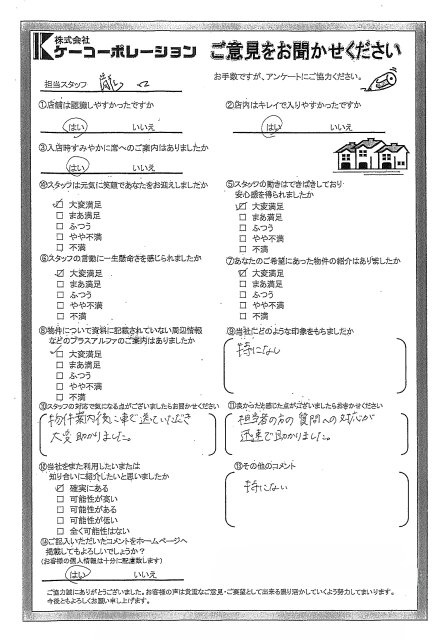 株式会社
ケーコーポレーション
ご意見をお聞かせください
担当スタッフ
お手数ですが、アンケートにご協力ください。
①店舗は認識しやすかったですか
はい いいえ
②店内はキレイで入りやすかったですか
はい いいえ
③入店時すみやかに席へのご案内はありましたか
はい いいえ
スタッフは元気に笑顔であなたをお迎えしましたか
大変満足
まあ満足
ふつう
やや不満
不満
⑤スタッフの動きはてきぱきしており
安心感を得られましたか
大変満足
まあ満足
ふつう
やや不満
不満
⑥スタッフの言動に一生懸命さを感じられましたか
大変満足
まあ満足
ふつう
やや不満
不満
⑦あなたのご希望にあった物件の紹介はあり繋したか
大変満足
まあ満足
ふつう
やや不満
不満
⑧物件について資料に記載されていない周辺情報
などのプラスアルファのご案内はありましたか
大変満足
まあ満足
ふつう
やや不満
不満
⑨当社にどのような印象をもちましたか
特になし
⑩スタッフの対応で気になる点がございましたらお聞かせください
物件案内後に車で送っていただき
大変助かりました。
⑪良かったと感じた点がございましたらお聞かせください
担当者の方の質問への対応が
迅速で助かりました。
⑫当社をまた利用したいまたは
知り合いに紹介したいと思いましたか
確実にある
可能性が高い
可能性がある
可能性が低い
全く可能性はない
⑬その他のコメント
特にない
⑭ご記入いただいたコメントをホームページへ
掲載してもよろしいでしょうか?
(お客様の個人情報は十分に配慮致します)
はい いいえ
ご協力誠にありがとうございました。お客様の声は貴重なご意見・ご要望として出来る限り活かしていくよう努力してまいります。
今後ともよろしくお願い申し上げます。